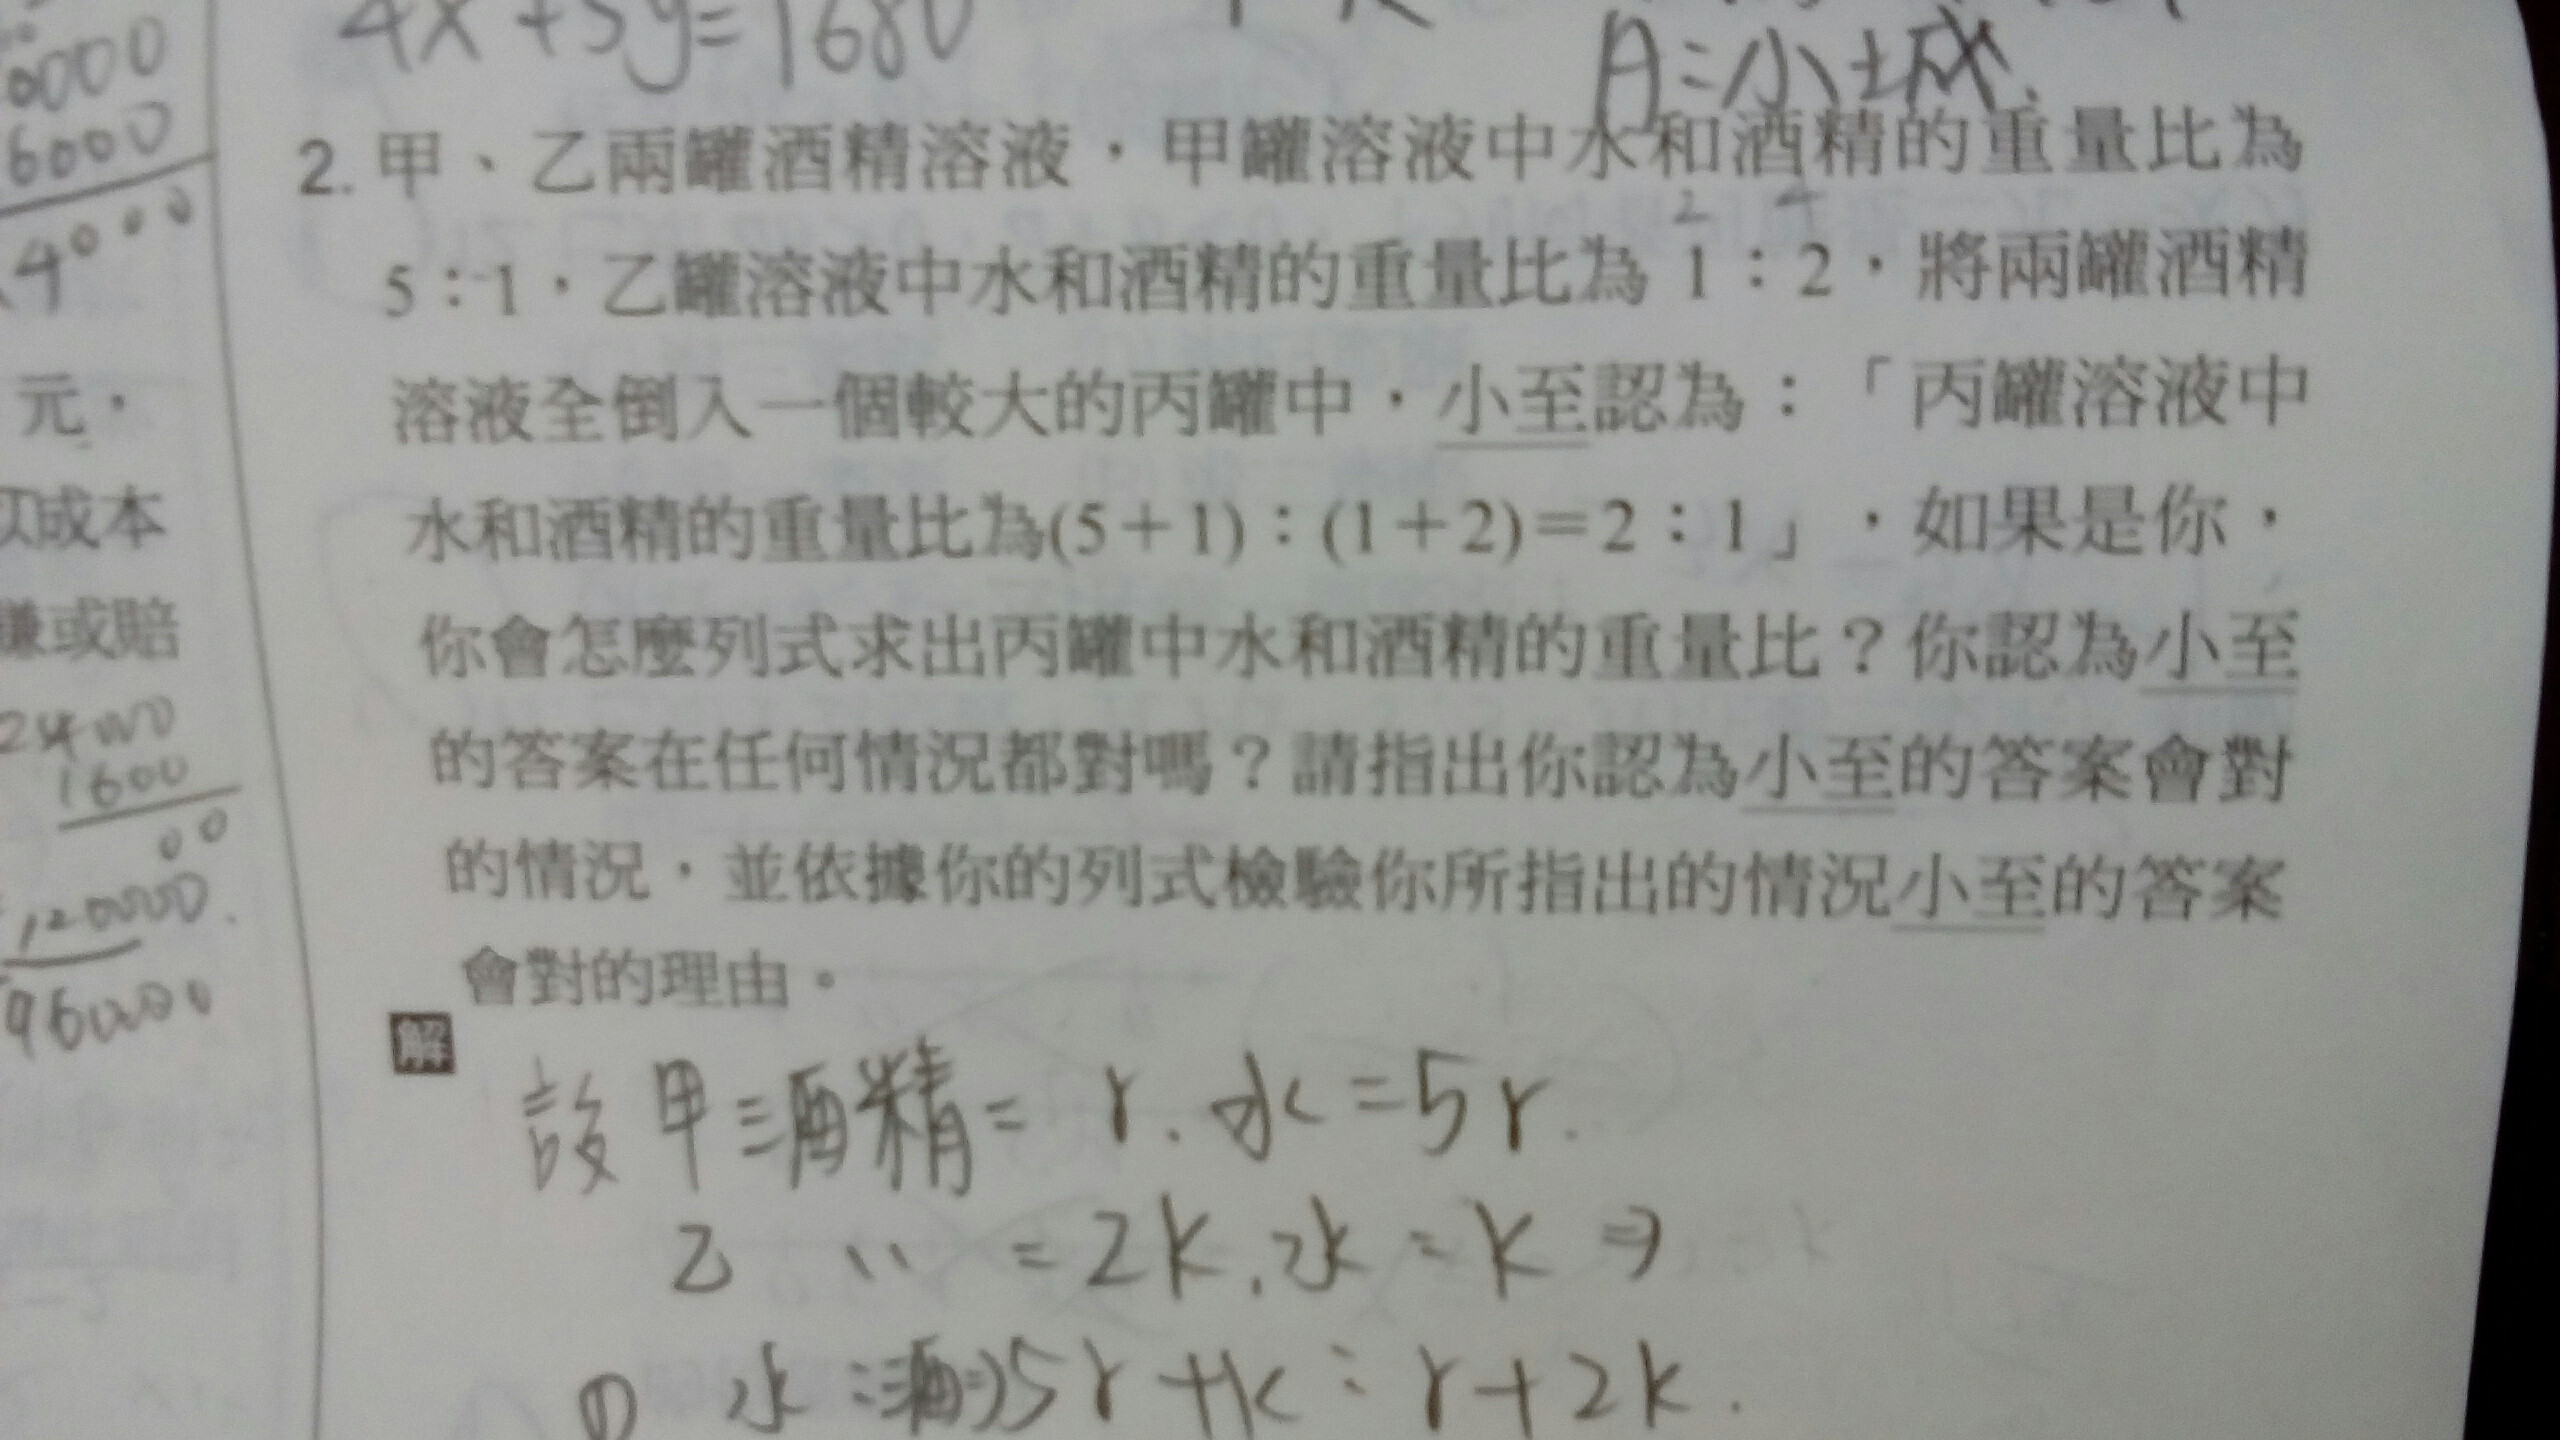 4x+5y=1680
A:小城.
0000
6000
4000
元，
以成本
賺或賠
24000
1600
00
120000.
960000
2. 甲、乙兩罐酒精溶液，甲罐溶液中水和酒精的重量比為
2 4
5：1，乙罐溶液中水和酒精的重量比為 1：2，將兩罐酒精
溶液全倒入一個較大的丙罐中，小至認為：「丙罐溶液中
水和酒精的重量比為(5＋1)：(1＋2)＝2：1」，如果是你，
你會怎麼列式求出丙罐中水和酒精的重量比？你認為小至
的答案在任何情況都對嗎？請指出你認為小至的答案會對
的情況，並依據你的列式檢驗你所指出的情況小至的答案
會對的理由。
解
設甲：酒精= r. 水=5r.
乙 〃 =2k, 水=k ⇒
① 水:酒⇒5r+k:r+2k.